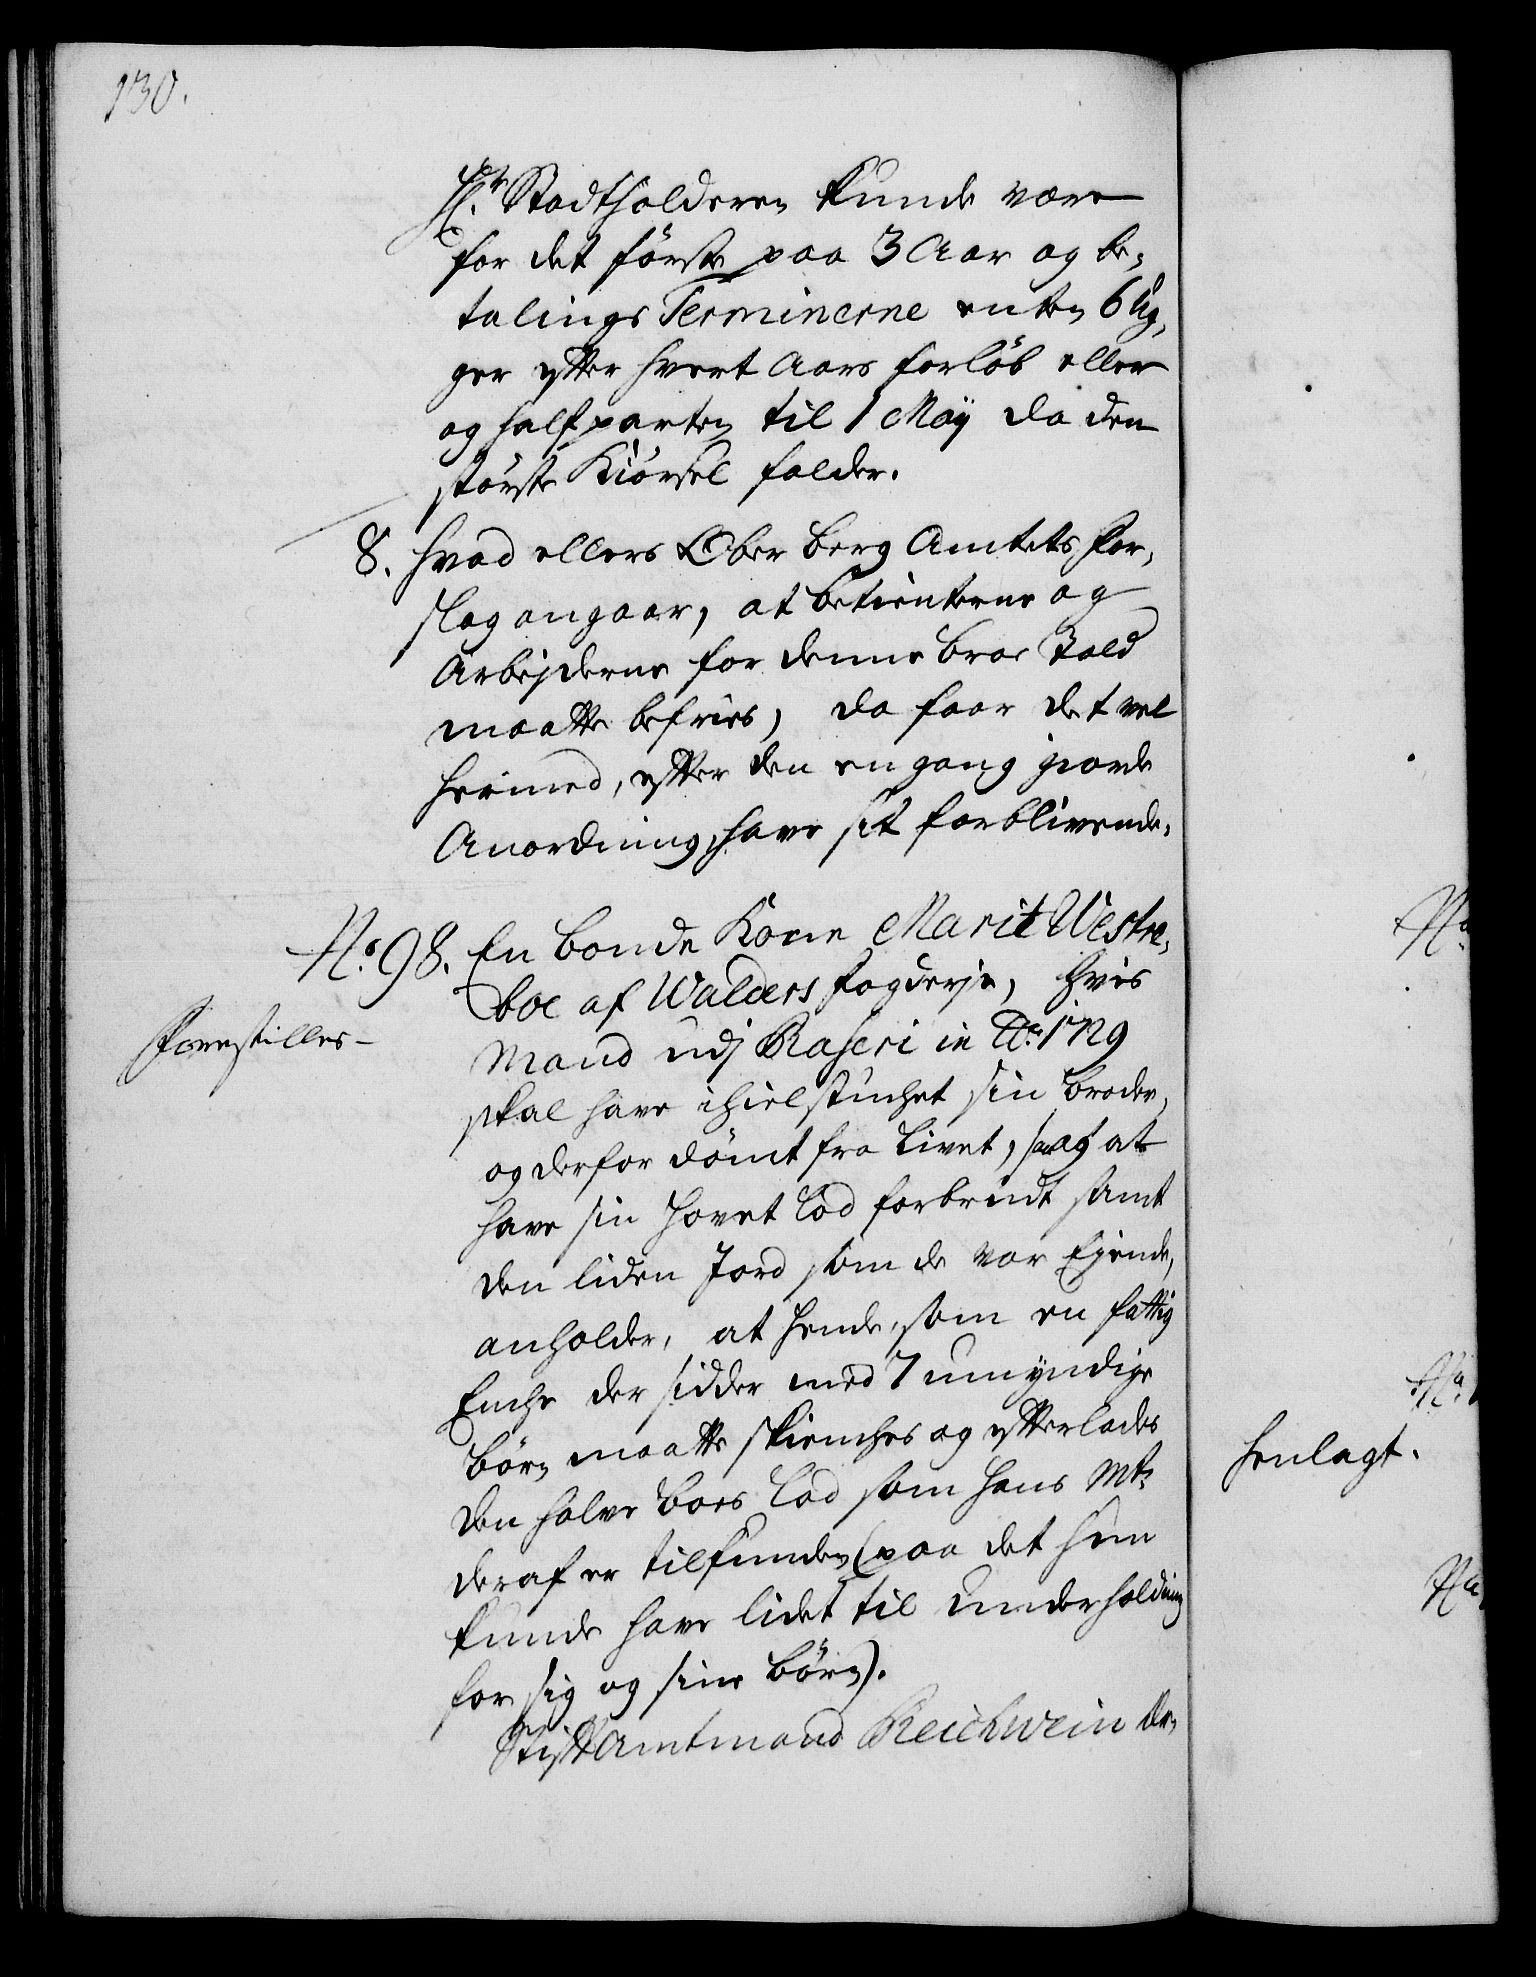 130.
Hr. Stadtholderen kunde være
for det förste paa 3 Aar og be-
talings Terminerne enten 6 Ug-
ger efter hvert Aars forlöb eller
og halfparten til 1 Maÿ da den
störste Kiörsel falder.
8. Hvad ellers Ober Berg Amtets for-
slag angaar, at betienterne og
Arbejderne for denne broe Told
maatte befries, da faar det vel
hermed, efter den engang giorde
Anordning, have sit forblivende.
No. 98. En bonde Kone Marit Westre-
boe af Walders fogderje, hvis
Mand udj Raseri in Ao. 1729
Forestilles
skal have ihielstucket sin broder,
og derfor dömt fra Livet, samt at
have sin hovet lod forbrudt samt
den liden Jord som de var Ejende,
anholder, at hende, som en fattig
Enche der sidder med 7 umÿndige
börn maatte skienches og efterlades
den halve boes lod som Hans Mt.
deraf er tilfunden (paa det hun
kunde have lidet til underholdning
for sig og sine börn).
Stiftamtmand Reichwein de-
No
No.
henlagt.
No